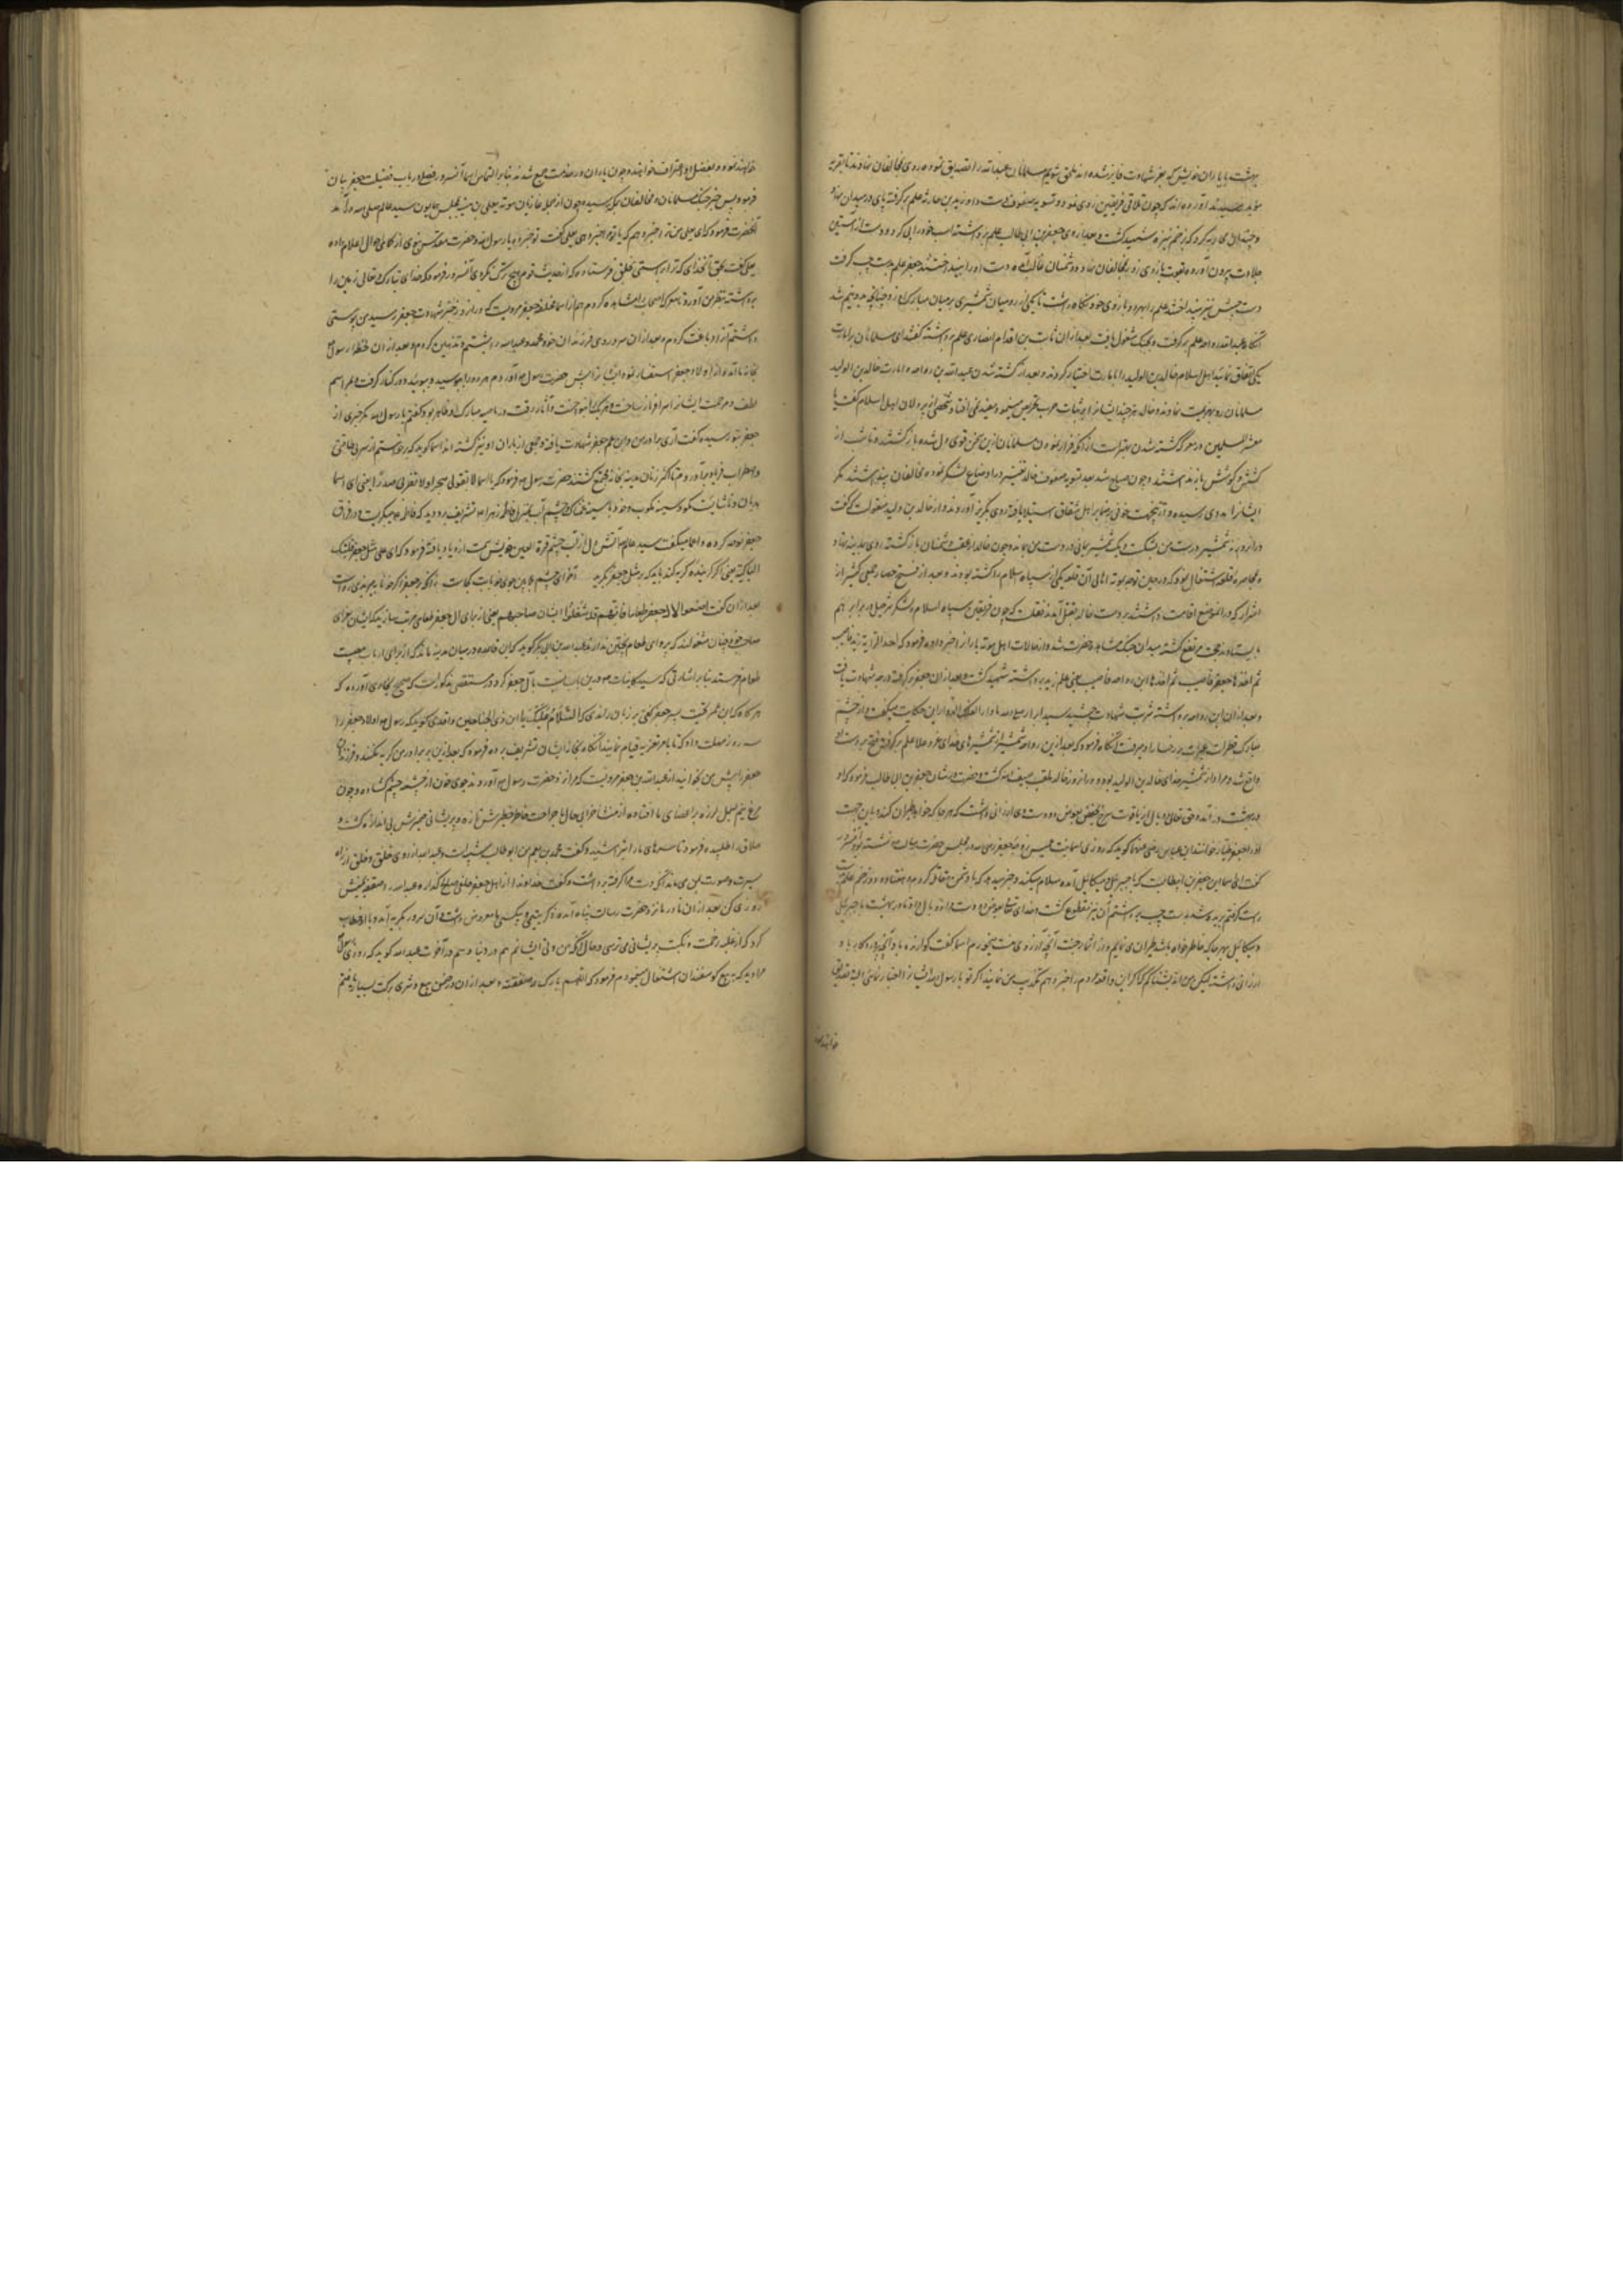 بهشت با یاران خویش که بعز شهادت فایز شده اند ملحق شویم مسلمانان عبدالله را تصدیق نموده روی بمخالفان نهادند
آورده اند که چون تلاقی فریقین روی نمود و تسویه صفوف دست داد زید بن حارثه علم برگرفته پای در میدان نهاد
و چندان محاربه کرد که بزخم نیزه شهید گشت و بعد از وی جعفر بن ابی طالب علم برداشته اسب خود را پی کرد و دست از آستین
جلادت بیرون آورده بقوت بازوی زور بمخالفان نهاد و دشمنان غالب آمده دست او را بینداختند جعفر علم بدست چپ گرفت
دست چپش نیز بینداختند علم را بهر دو بازوی خود نگاه داشت تا یکی از رومیان شمشیری بر میان مبارکش زد چنانچه بدو نیم شد
آنگاه عبدالله رواحه علم برگرفت و بجنگ مشغول بعد از آن ثابت بن اقدام انصاری علم برداشته گفت ای مسلمانان
یکی اتفاق نمائید اهل اسلام خالد بن الولید را بامارت اختیار کردند و بعد از کشته شدن عبدالله بن رواحه و امارت خالد بن الولید
مسلمانان رو بهزیمت نهادند و خالد هر چند ایشانرا بر ثبات حرب تحریص مینمود مفید نمی افتاد شخصی از اهل اسلام گفت یا
معشر المسلمین در معرکه کشته شدن بهتر است از آنکه در فرار نمودن مسلمانان ازین سخن قوی دل شده بازگشتند و تا شب از
کشش و کوشش باز نه ایستادند و چون صباح شد بعد تسویه صفوف خالد تغییر در اوضاع لشکر نموده مخالفان پنداشتند مگر
ایشانرا مددی رسیده و از این جهت خوفی بر ضمایر اهل شقاق استیلا یافته روی بگریز آوردند و از خالد بن ولید منقولست که گفت
در آن روز نه شمشیر در دست من بشکست و یک شمشیر یمانی در دست من بماند و چون خالد از تعقب دشمنان بازگشته روی بمدینه نهاد
و بمحاصره قلعه اشتغال نمود که در حین توجه بموته اهالی آن قلعه یکی از سپاه اسلام را کشته بودند و بعد از فتح حصار جمعی کثیر از
اشرار که در آن موضع اقامت داشتند بر دست خالد بقتل آمدند نقلست که چون فریقین سپاه اسلام و لشکر شرحبیل در برابر هم
بایستادند حجب مرتفع گشته میدان جنگ مشاهد حضرت شد و از حالات اهل موته یارانرا خبر داده فرمود که اخذ الرایة زید فاصیب
ثم اخذها جعفر فاصیب ثم اخذها ابن رواحه فاصیب یعنی علم زید برداشته شهید گشت و بعد از آن جعفر برگرفته درجه شهادت یافت
و بعد از آن ابن رواحه برداشته شربت شهادت چشید سید ابرار صلی الله علیه و آله این حکایت میگفت و از چشم
مبارک قطرات عبرات بر رخسار او میرفت آنگاه فرمود که بعد ازین رواحه شمشیری از شمشیرهای خدای عز و علا علم برگرفت فتح بر دست او
واقع شد و مراد از شمشیر خدای خالد بن الولید بود و در آن روز خالد ملقب بسیف الله گشت و حضرت در شان جعفر بن ابی طالب فرمود که او
در بهشت درآمده حق تعالی دو بال از یاقوت سرخ بعوض دو دست وی ارزانی داشت که هر جا که خواهد طیران کند و باین جهت
او را جعفر طیار خوانند ابن عباس رضی عنهما گوید که روزی اسماء بنت عمیس زوجه جعفر رضی الله در مجلس حضرت رسالت نشسته بود آنحضرت
گفت ای اسماء این جعفر بن ابیطالب است که با جبرئیل و میکائیل آمده سلام میکند و خبر میدهد که با دشمن مقاتله کردم و هفتاد و دو زخم
راست گرفتم بریده شد بدست چپ برداشتم آن نیز مقطوع گشت و خدای تعالی بعوض دو دست مرا دو بال داد تا در بهشت با جبرئیل
و میکائیل بهر جا که خاطر خواه باشد طیران می نمایم و از اثمار جنت آنچه آرزوی منست میخورم اسماء گفت گوارنده باد آنچه پروردگار با او
ارزانی داشته لیکن من اندیشناکم که اگر این واقعه مردم را خبر دهم تکذیب من نمایند اگر تو یا رسول الله ایشانرا اخبار نمائی البته تصدیق
خواهند نمود
خواهند نمود و بفضل او اعتراف خواهند و چون یاران در خدمت جمع شدند بنابر التماس اسماء آنسرور فصلی در باب فضیلت جعفر بیان
فرمود پس خبر جنگ مسلمانان و مخالفان بیک بیک رسیده و چون از جمله غازیان موته یعلی بن منیه بمجلس همایون سید عالم صلی الله درآمد
آنحضرت فرمود که ای یعلی من ترا خبر دهم یا تو مرا خبر دهی یعلی گفت تو خبر ده یا رسول الله و حضرت مقدس نبوی از کماهی احوال اعلام داده
یعلی گفت بحق آن خدای که ترا براستی بخلق فرستاده که از حدیث قوم هیچ ترک نکردی آنسرور فرمود که خدای تبارک و تعالی زمین را
برداشته بنظر من آورد تا معرکه اصحاب را مشاهده کردم و هم از اسماء منکوحه جعفر مرویست که در آن روز خبر شهادت جعفر رسید من پوستی
داشتم آنرا دباغت کردم و بعد از آن سر و روی فرزندان خود محمد و عبدالله را بشستم و تدهین کردم و بعد از آن حضرت رسول ص
بخانه ما آمده از اولاد جعفر استفسار نمود ایشانرا پیش حضرت رسول ص آوردم هر دو را بوسید و ببوئید و در کنار گرفت
لطف و مرحمت ایشانرا سرافراز ساخت و آثار رقت در ناصیه مبارک او ظاهر بود گفتم یا رسول الله مگر خبری از
جعفر بتو رسیده گفت آری برادر من و ابن عم جعفر شهادت یافته و جمعی از یاران او نیز کشته اند اسماء گوید که برخاستم از سر بی طاقتی
و اضطراب فریاد برآوردم تا اکثر زنان مدینه بخانه مجتمع گشتند حضرت رسول ص فرمود که یا اسماء لا تقولی هجرا و لا تضربی صدرا یعنی ای اسماء
هذیان و ناشایست مگو و سینه مکوب و خود با سینه غمناک و چشم آب بمنزل فاطمه زهرا ص تشریف برد و دید که فاطمه میگریست و در فراق
جعفر نوحه کرده وا عماه میگفت سید عالم را آتش دل از آب چشم قرة العین خویش سمت ازدیاد یافته فرمود که ای علی مثل جعفر فلتبک
الباکیة یعنی اگر گرینده گریه کند باید که بر مثل جعفر بگرید
بعد از آن گفت اصنعوا لآل جعفر طعاما فانهم قد شغلوا الشان صاحبهم یعنی از برای آل جعفر طعامی مرتب سازید که ایشان بعزای
صاحب خود چنان مشغولند که پروای طعام پختن ندارند عبدالله بن ابی بکر گوید که این قاعده در میان مدینه ماند که از برای ارباب مصیبت
طعام فرستند بنابر اشارتی که سید کاینات ص درین باب نسبت بآل جعفر کرد و در مستقصی مذکور است که صحیح بخاری آورده که
هر گاه که ابن عمر تحیت پسر جعفر گفتی بر زبان راندی که السلام علیک یا ابن ذی الجناحین واقدی گوید که رسول ص اولاد جعفر را
سه روز مهلت داد که تا بامر تعزیه قیام نمایند آنگاه بخانه ایشان تشریف برده فرمود که بعد ازین بر برادر من گریه مکنید و فرزندان
جعفر را پیش من بخوانید از عبدالله بن جعفر مرویست که مرا نزد حضرت رسول ص آوردند جوی خون از چشمه چشم گشاده و چون
مرغ نیم بسمل لرزه بر اعضای ما افتاده از مشاهده حال ما جراحت خاطر خطیرش تازه و پریشانی ضمیرش بی اندازه گشت و
حلاق را طلبیده فرمود تا سرهای ما را بتراشید و گفت محمد بن جعفر بعم من ابو طالب شبیه است و عبدالله از روی خلق و خلق از راه
سیرت و صورت بمن می ماند آنگه دست مرا گرفته برداشت و گفت خداوندا از اهل جعفر خلفی صالح گذار و عبدالله را در صفقه یمینش
روزی کن بعد از آن مادر ما نزد حضرت رسالت پناه آمده ذکر یتیمی و بیکسی ما معروض داشت و آن سرور بگریه آمد و با او خطاب
کرد که از غلبه زحمت و نکبت پریشانی می ترسی و حال آنکه من ولی ایشانم هم در دنیا و هم در آخرت عبدالله گوید که روزی رسول ص
مرا دید که به بیع گوسفندان اشتغال مینمودم فرمود که اللهم بارک له صفقته و بعد از آن در ضمن بیع و شری برکت بسیار یافتم